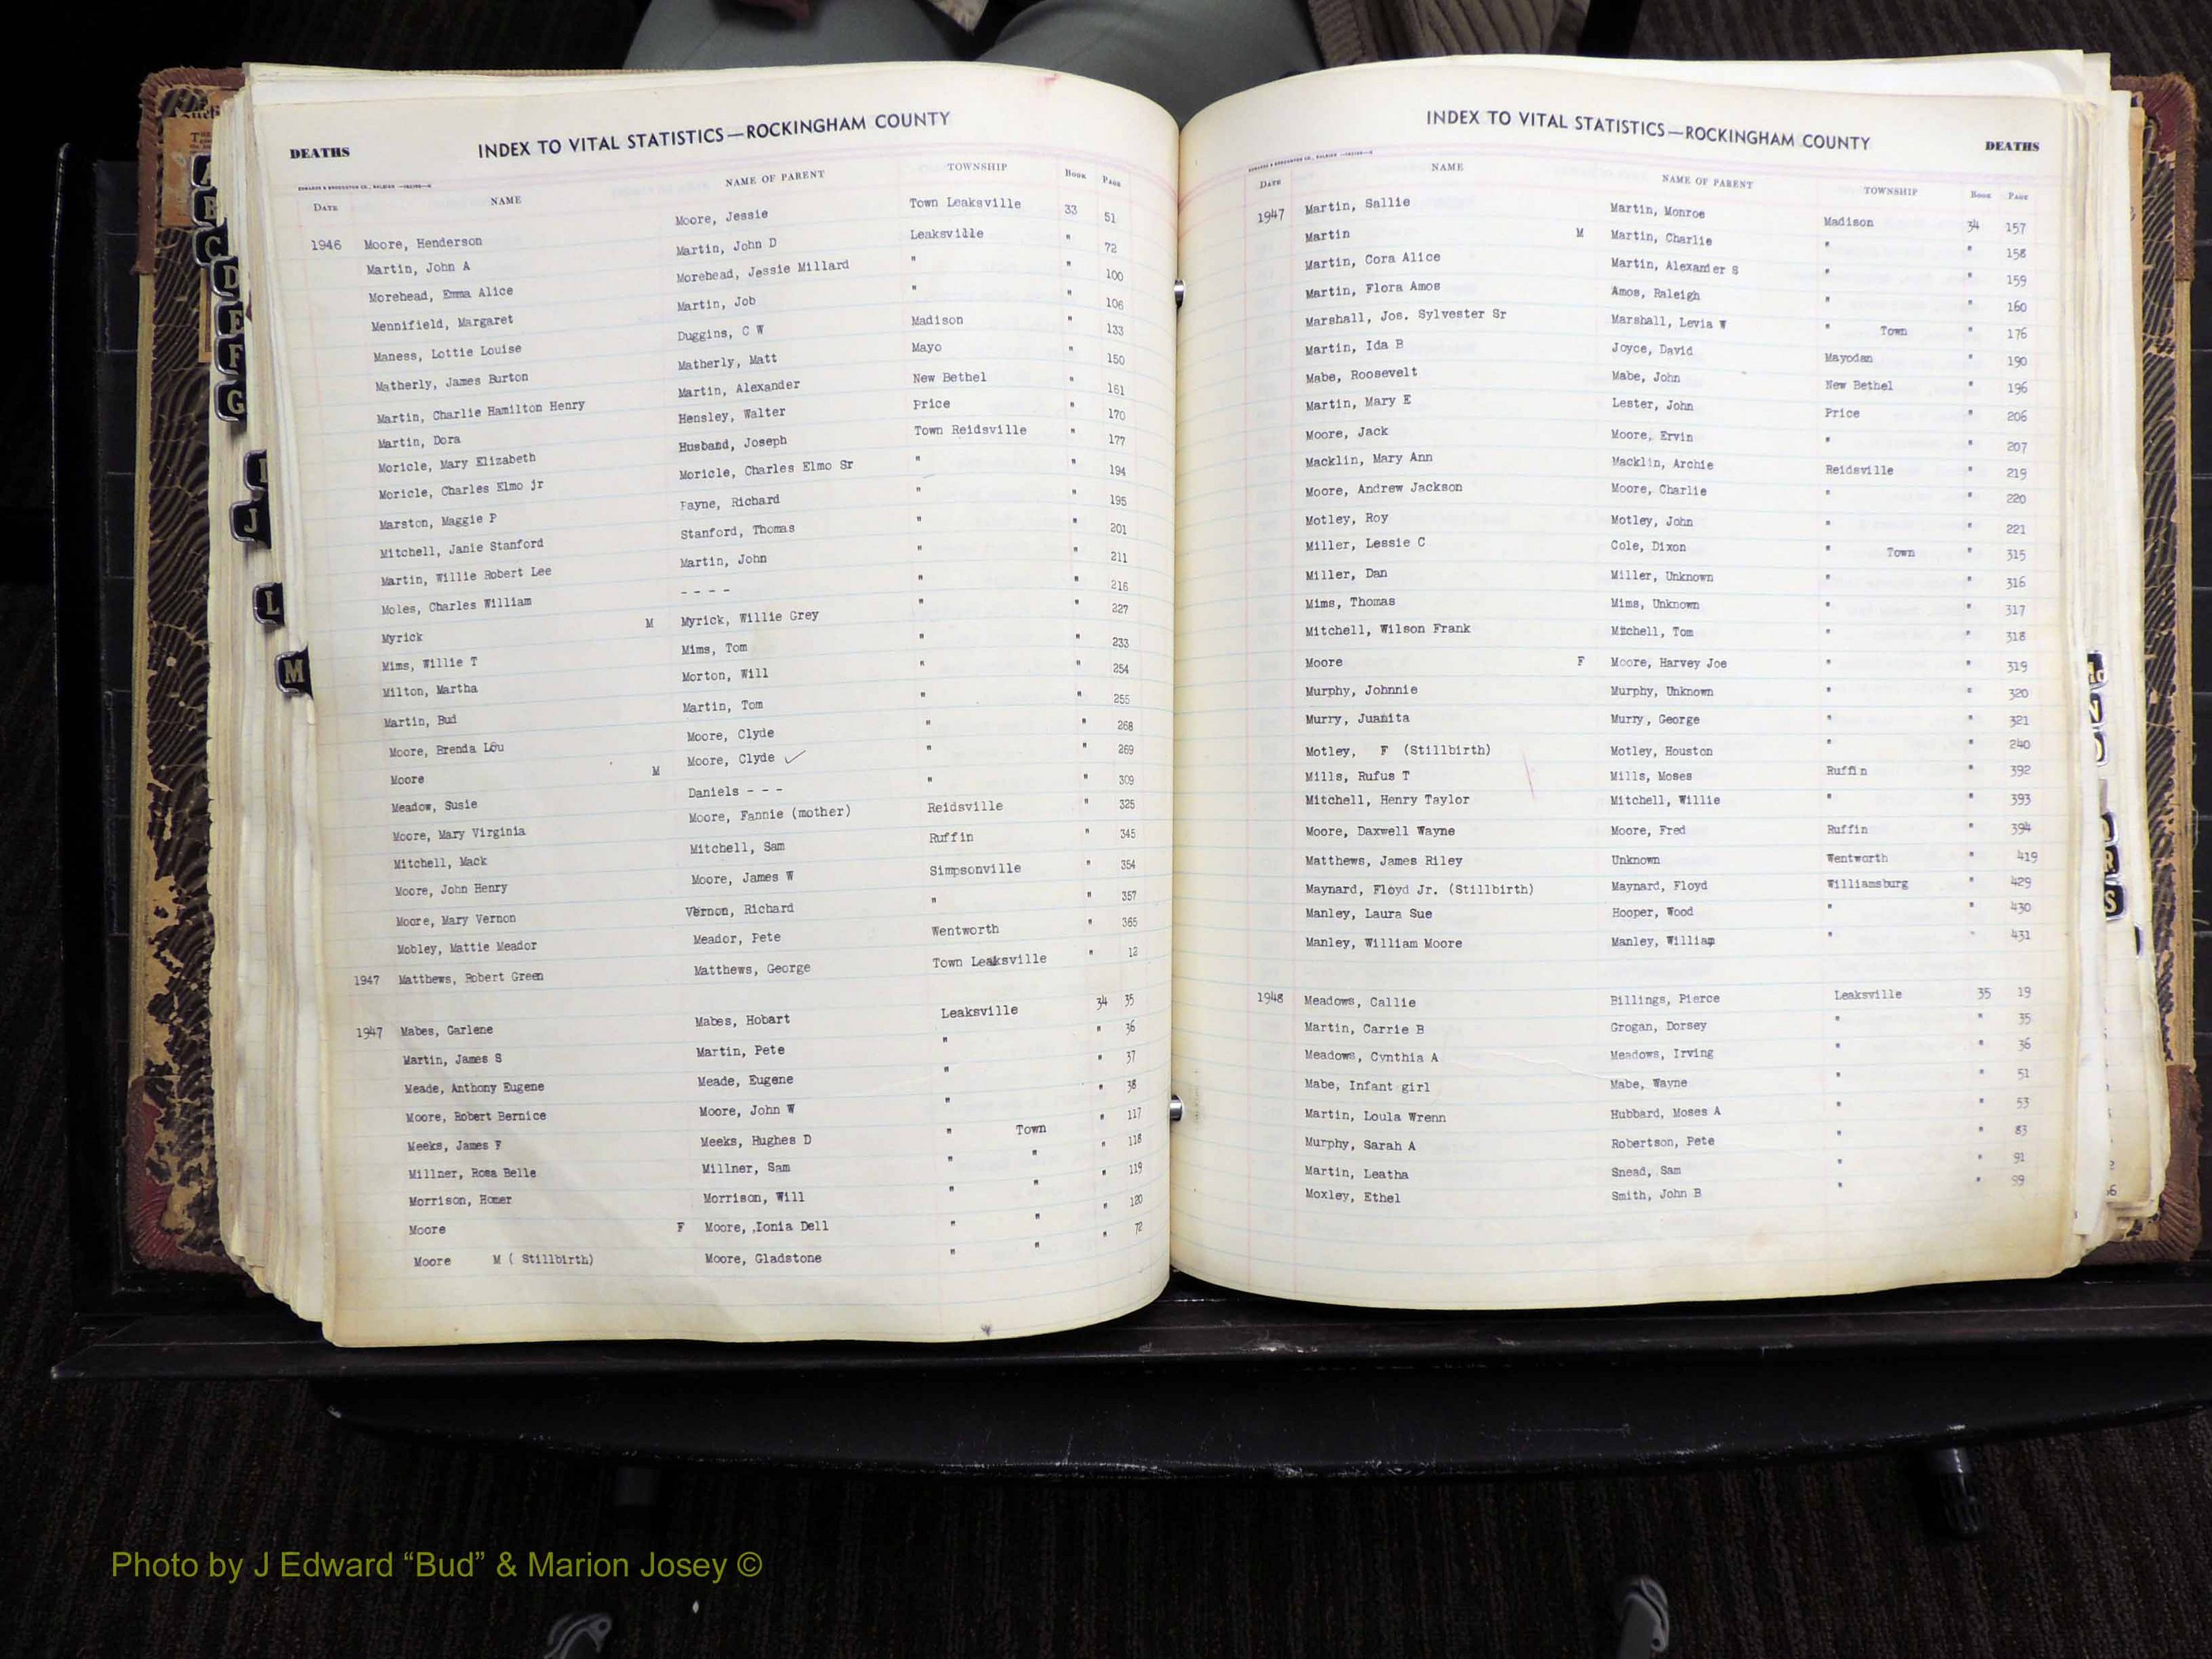 DEATHS INDEX TO VITAL STATISTICS—ROCKINGHAM COUNTY
DATE NAME NAME OF PARENT TOWNSHIP BOOK PAGE
1946 Moore, Henderson Moore, Jessie Town Leaksville 33 51
Martin, John A Martin, John D Leaksville " 72
Morehead, Emma Alice Morehead, Jessie Millard " " 100
Mennifield, Margaret Martin, Job " " 106
Maness, Lottie Louise Duggins, C W Madison " 133
Matherly, James Burton Matherly, Matt Mayo " 150
Martin, Charlie Hamilton Henry Martin, Alexander New Bethel " 161
Martin, Dora Hensley, Walter Price " 170
Moricle, Mary Elizabeth Husband, Joseph Town Reidsville " 177
Moricle, Charles Elmo jr Moricle, Charles Elmo Sr " " 194
Marston, Maggie P Payne, Richard " " 195
Mitchell, Janie Stanford Stanford, Thomas " " 201
Martin, Willie Robert Lee Martin, John " " 211
Moles, Charles William - - - - " " 216
Myrick M Myrick, Willie Grey " " 227
Mims, Willie T Mims, Tom " " 233
Milton, Martha Morton, Will " " 254
Martin, Bud Martin, Tom " " 255
Moore, Brenda Lou Moore, Clyde " " 268
Moore M Moore, Clyde ✓ " " 269
Meadow, Susie Daniels - - - " " 309
Moore, Mary Virginia Moore, Fannie (mother) Reidsville " 325
Mitchell, Mack Mitchell, Sam Ruffin " 345
Moore, John Henry Moore, James W Simpsonville " 354
Moore, Mary Vernon Vernon, Richard " " 357
Mobley, Mattie Meador Meador, Pete Wentworth " 365
1947 Matthews, Robert Green Matthews, George Town Leaksville " 12
1947 Mabes, Garlene Mabes, Hobart Leaksville 34 35
Martin, James S Martin, Pete " " 36
Meade, Anthony Eugene Meade, Eugene " " 37
Moore, Robert Bernice Moore, John W " " 38
Meeks, James F Meeks, Hughes D " Town " 117
Millner, Rosa Belle Millner, Sam " " " 118
Morrison, Homer Morrison, Will " " " 119
Moore F Moore, ,Ionia Dell " " " 120
Moore M ( Stillbirth) Moore, Gladstone " " " 72
INDEX TO VITAL STATISTICS—ROCKINGHAM COUNTY DEATHS
DATE NAME NAME OF PARENT TOWNSHIP BOOK PAGE
1947 Martin, Sallie Martin, Monroe Madison 34 157
Martin M Martin, Charlie " " 158
Martin, Cora Alice Martin, Alexander S " " 159
Martin, Flora Amos Amos, Raleigh " " 160
Marshall, Jos. Sylvester Sr Marshall, Levia W " Town " 176
Martin, Ida B Joyce, David Mayodan " 190
Mabe, Roosevelt Mabe, John New Bethel " 196
Martin, Mary E Lester, John Price " 206
Moore, Jack Moore, Ervin " " 207
Macklin, Mary Ann Macklin, Archie Reidsville " 219
Moore, Andrew Jackson Moore, Charlie " " 220
Motley, Roy Motley, John " " 221
Miller, Lessie C Cole, Dixon " Town " 315
Miller, Dan Miller, Unknown " " 316
Mims, Thomas Mims, Unknown " " 317
Mitchell, Wilson Frank Mitchell, Tom " " 318
Moore F Moore, Harvey Joe " " 319
Murphy, Johnnie Murphy, Unknown " " 320
Murry, Juanita Murry, George " " 321
Motley, F (Stillbirth) Motley, Houston " " 240
Mills, Rufus T Mills, Moses Ruffin " 392
Mitchell, Henry Taylor Mitchell, Willie " " 393
Moore, Daxwell Wayne Moore, Fred Ruffin " 394
Matthews, James Riley Unknown Wentworth " 419
Maynard, Floyd Jr. (Stillbirth) Maynard, Floyd Williamsburg " 429
Manley, Laura Sue Hooper, Wood " " 430
Manley, William Moore Manley, William " " 431
1948 Meadows, Callie Billings, Pierce Leaksville 35 19
Martin, Carrie B Grogan, Dorsey " " 35
Meadows, Cynthia A Meadows, Irving " " 36
Mabe, Infant girl Mabe, Wayne " " 51
Martin, Loula Wrenn Hubbard, Moses A " " 53
Murphy, Sarah A Robertson, Pete " " 83
Martin, Leatha Snead, Sam " " 91
Moxley, Ethel Smith, John B " " 99
A
B
C
D
E
F
G
I
J
L
M
N
R
S
Photo by J Edward “Bud” & Marion Josey ©